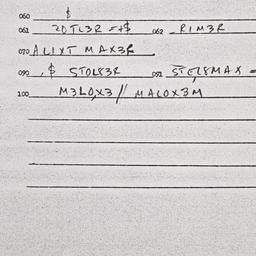 060 $
061 ZOTL3R =+$ 062 RIM3R
070 ALIXT MAX3R
090 $ STOL83R 091 STEL8MAX =
100 M3LOX3 // MALOX3M